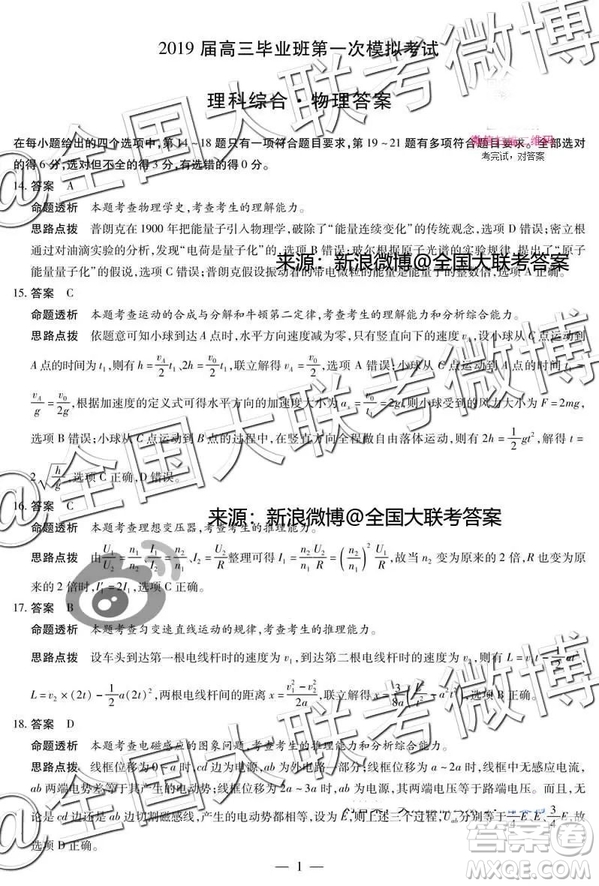 2019 届高三毕业班第一次模拟考试
理科综合·物理答案
考完试,对答案
在每小题给出的四个选项中,第 14~18 题只有一项符合题目要求,第 19~21 题有多项符合题目要求。全部选对
的得 6 分,选对但不全的得 3 分,有选错的得 0 分。
14. 答案 A
命题透析 本题考查物理学史,考查考生的理解能力。
思路点拨 普朗克在 1900 年把能量子引入物理学,破除了“能量连续变化”的传统观念,选项 D 错误;密立根
通过对油滴实验的分析,发现“电荷是量子化”的,选项 B 错误;玻尔根据氢原子光谱的实验规律,提出了“原子
能量量子化”的假说,选项 C 错误;普朗克假设振动着的带电微粒的能量是能量子的整数倍,选项 A 正确。
来源:新浪微博@全国大联考答案
15. 答案 C
命题透析 本题考查运动的合成与分解和牛顿第二定律,考查考生的理解能力和分析综合能力。
思路点拨 依题意可知小球到达 A 点时,水平方向速度减为零,只有竖直向下的速度,小球从 C 点运动到
A 点的时间为 t₁,则有 h = v_A/2 t₁、2h = v₀/2 t₁,联立解得 v_A = v₀/2
v_A/g = v₀/2g,根据加速度的定义式可得水平方向的加速度大小为 = 2g,则小球受到的风力大小为 F = 2mg,
选项 B 错误;小球从 C 点运动到 点的过程中,在竖直方向 自由落体运动,则有 2h = 1/2 gt²,解得 t =
2√(h/g),选项 C 正确,D 错误。
来源:新浪微博@全国大联考答案
16. 答案 C
命题透析 本题考查理想变压器,考查考生的推理能力。
思路点拨 由 U₁/U₂ = n₁/n₂、I₂/I₁ = n₁/n₂、I₂ = U₂/R 整理可得 I₁ = n₂U₂/n₁R = (n₂/n₁)² U₁/R,故当 n₂ 变为原来的 2 倍,R 也变为原
来的 2 倍时,I₁′ = 2I₁,选项 C 正确。
17. 答案 B
命题透析 本题考查匀变速直线运动的规律,考查考生的推理能力。
思路点拨 设车头到达第一根电线杆时的速度为 v₁,到达第二根电线杆时的速度为 v₂,则有 L =
L = v₂ × (2t) − 1/2 a(2t)²,两根电线杆间的距离 x = (v₁² − v₂²)/2a,联立解得 x = ,选项 B 正确。
18. 答案 D
命题透析 本题考查电磁感应的图象问题,考查考生的推理能力和分析综合能力。
思路点拨 线框位移为 0~a 时,cd 边为电源,ab 为外电路一部分;线框位移为 a~2a 时,没有感应电流,
ab 两端电势差等于其产生的电动势;线框位移为 2a~3a 时,ab 边为电源,ab 两端电压等于路端电压。而且,无
论是 cd 边还是 ab 边切割磁感线,产生的电动势都相等,设为 E,则上述三个过程,
— 1 —
@全国大联考微博
@全国大联考微博
答案圈